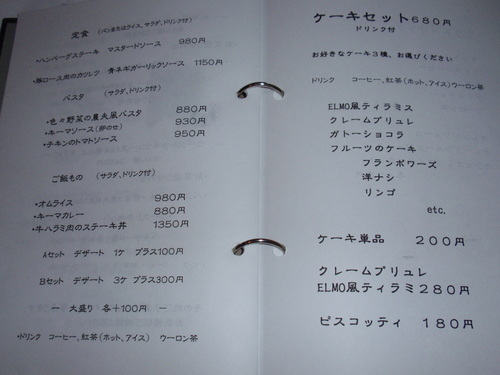 定食 (パンまたはライス、サラダ、ドリンク付)
・ハンバーグステーキ マスタードソース 980円
・豚ロース肉のカツレツ 青ネギガーリックソース 1150円
パスタ (サラダ、ドリンク付)
・色々野菜の農夫風パスタ 880円
・キーマソース(卵のせ) 930円
・チキンのトマトソース 950円
ご飯もの (サラダ、ドリンク付)
・オムライス 980円
・キーマカレー 880円
・牛ハラミ肉のステーキ丼 1350円
Aセット デザート 1ケ プラス100円
Bセット デザート 3ケ プラス300円
― 大盛り 各+100円 ―
・ドリンク コーヒー、紅茶(ホット、アイス) ウーロン茶
ケーキセット680円
ドリンク付
お好きなケーキ3種、お選びください
ドリンク コーヒー、紅茶(ホット、アイス)ウーロン茶
ELMO風ティラミス
クレームブリュレ
ガトーショコラ
フルーツのケーキ
フランボワーズ
洋ナシ
リンゴ
etc.
ケーキ単品 200円
クレームブリュレ
ELMO風ティラミ280円
ビスコッティ 180円